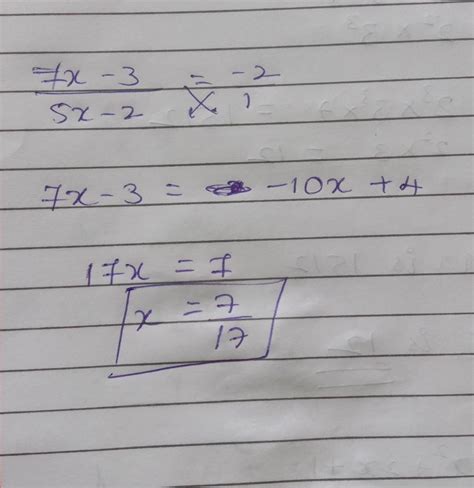 7x - 3 = -2
5x - 2 1
7x - 3 = -10x + 4
17x = 7
x = 7
17